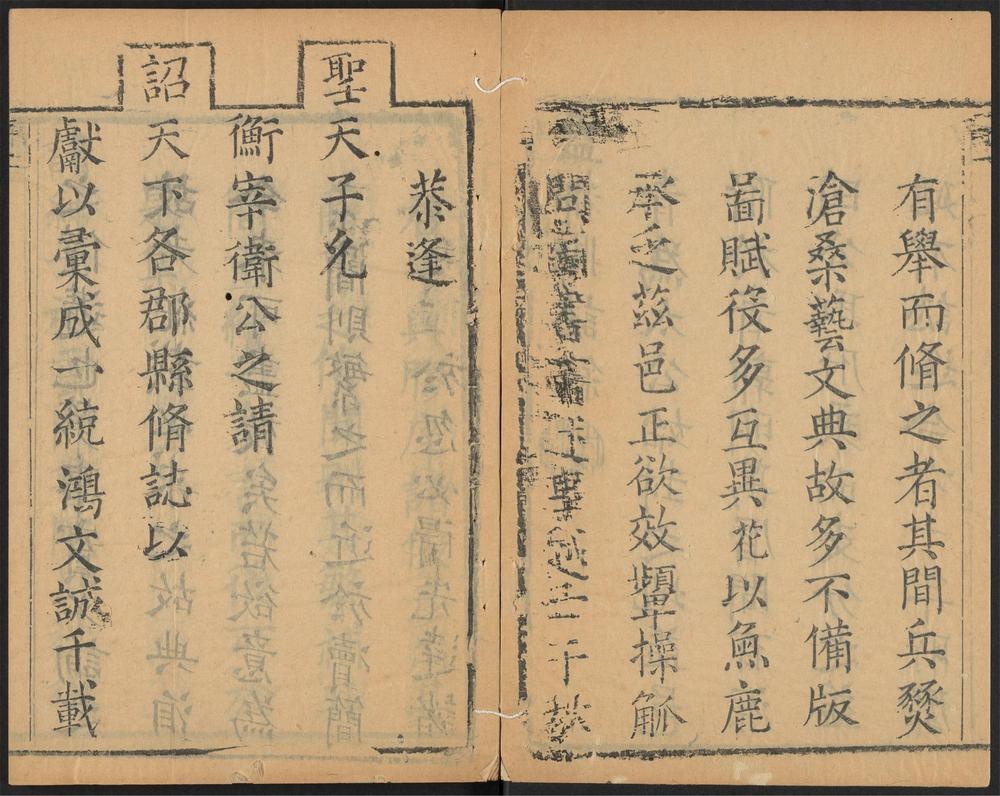 有舉而脩之者其間兵燹
滄桑藝文典故多不備版
啚賦役多互異花以魚鹿
承乏茲邑正欲效顰操觚
恭逢
聖天子允
衡宰衛公之請
詔天下各郡縣脩誌以
獻以彙成一統鴻文誠千載